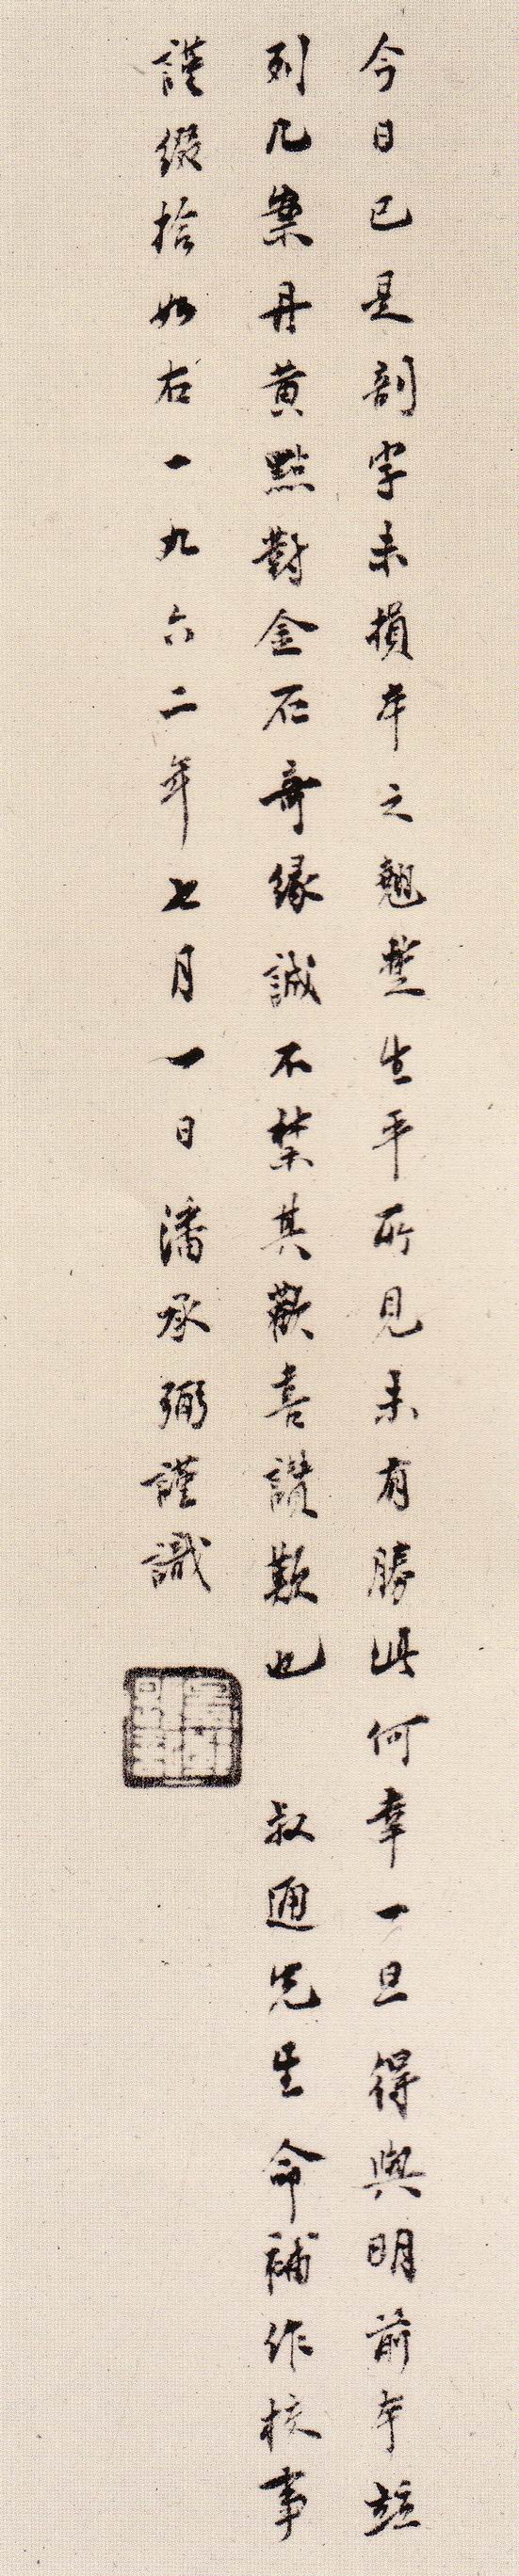 今日已是剖字未損本之翹楚生平所見未有勝此何幸一旦得與明前本竝
列几案丹黃點對金石奇緣誠不禁其歡喜讚歎也　叔通先生命補作校事
謹綴拾如右一九六二年七月一日潘承弼謹識